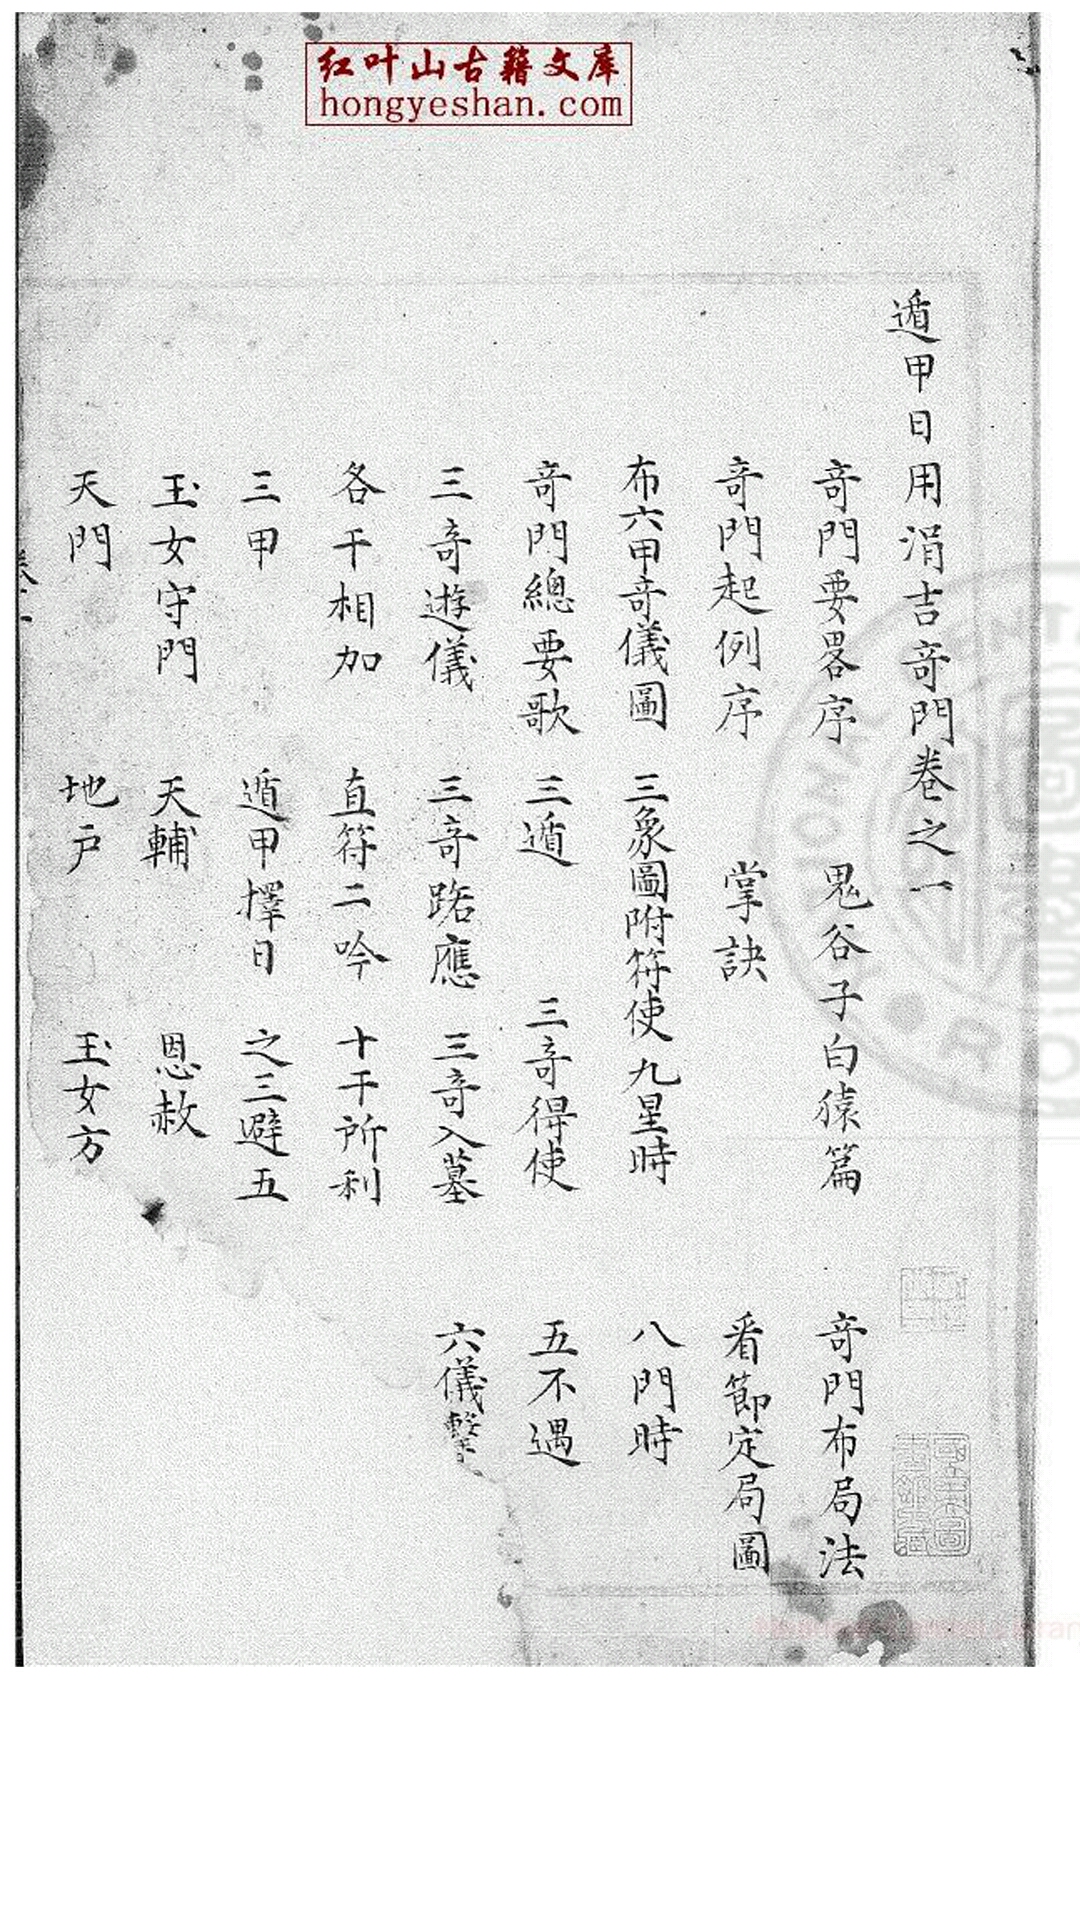 红叶山古籍文库
hongyeshan.com
遁甲日用涓吉竒門卷之一
竒門要畧序 鬼谷子白猿篇 竒門布局法
竒門起例序 掌訣 看節定局圖
布六甲竒儀圖 三象圖附符使九星時 八門時
竒門總要歌 三遁 三竒得使 五不遇
三竒遊儀 三竒路應 三竒入墓 六儀擊
各干相加 直符二吟 十干所利
三甲 遁甲擇日 之三避五
玉女守門 天輔 恩赦
天門 地户 玉女方